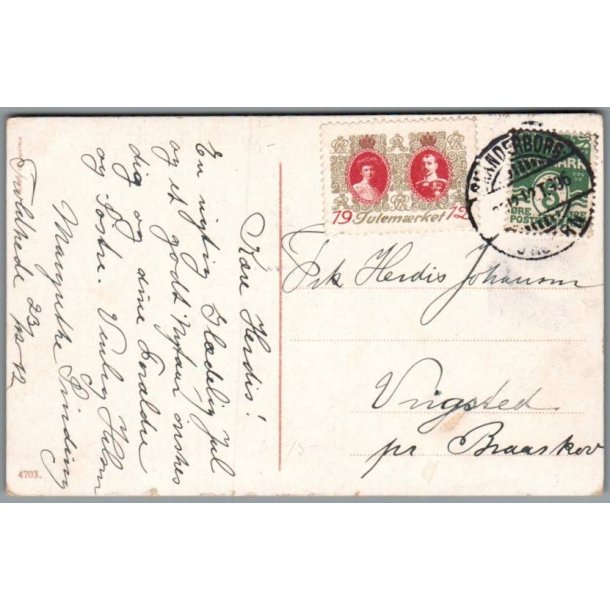 Kære Herdis!
En rigtig Glædelig Jul
og et godt Nytaar ønskes
dig og dine Forældre
og Søstre. Venlig Hilsen
Margrethe Sinding
23/12-12
4703.
19 Julemærket 12
SKANDERBORG
5
ØRE
POST
ØRE
Frk Herdis Johansen
Vrigsted
pr Braaskov